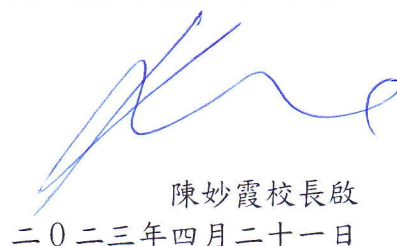 陳妙霞校長啟
二０二三年四月二十一日